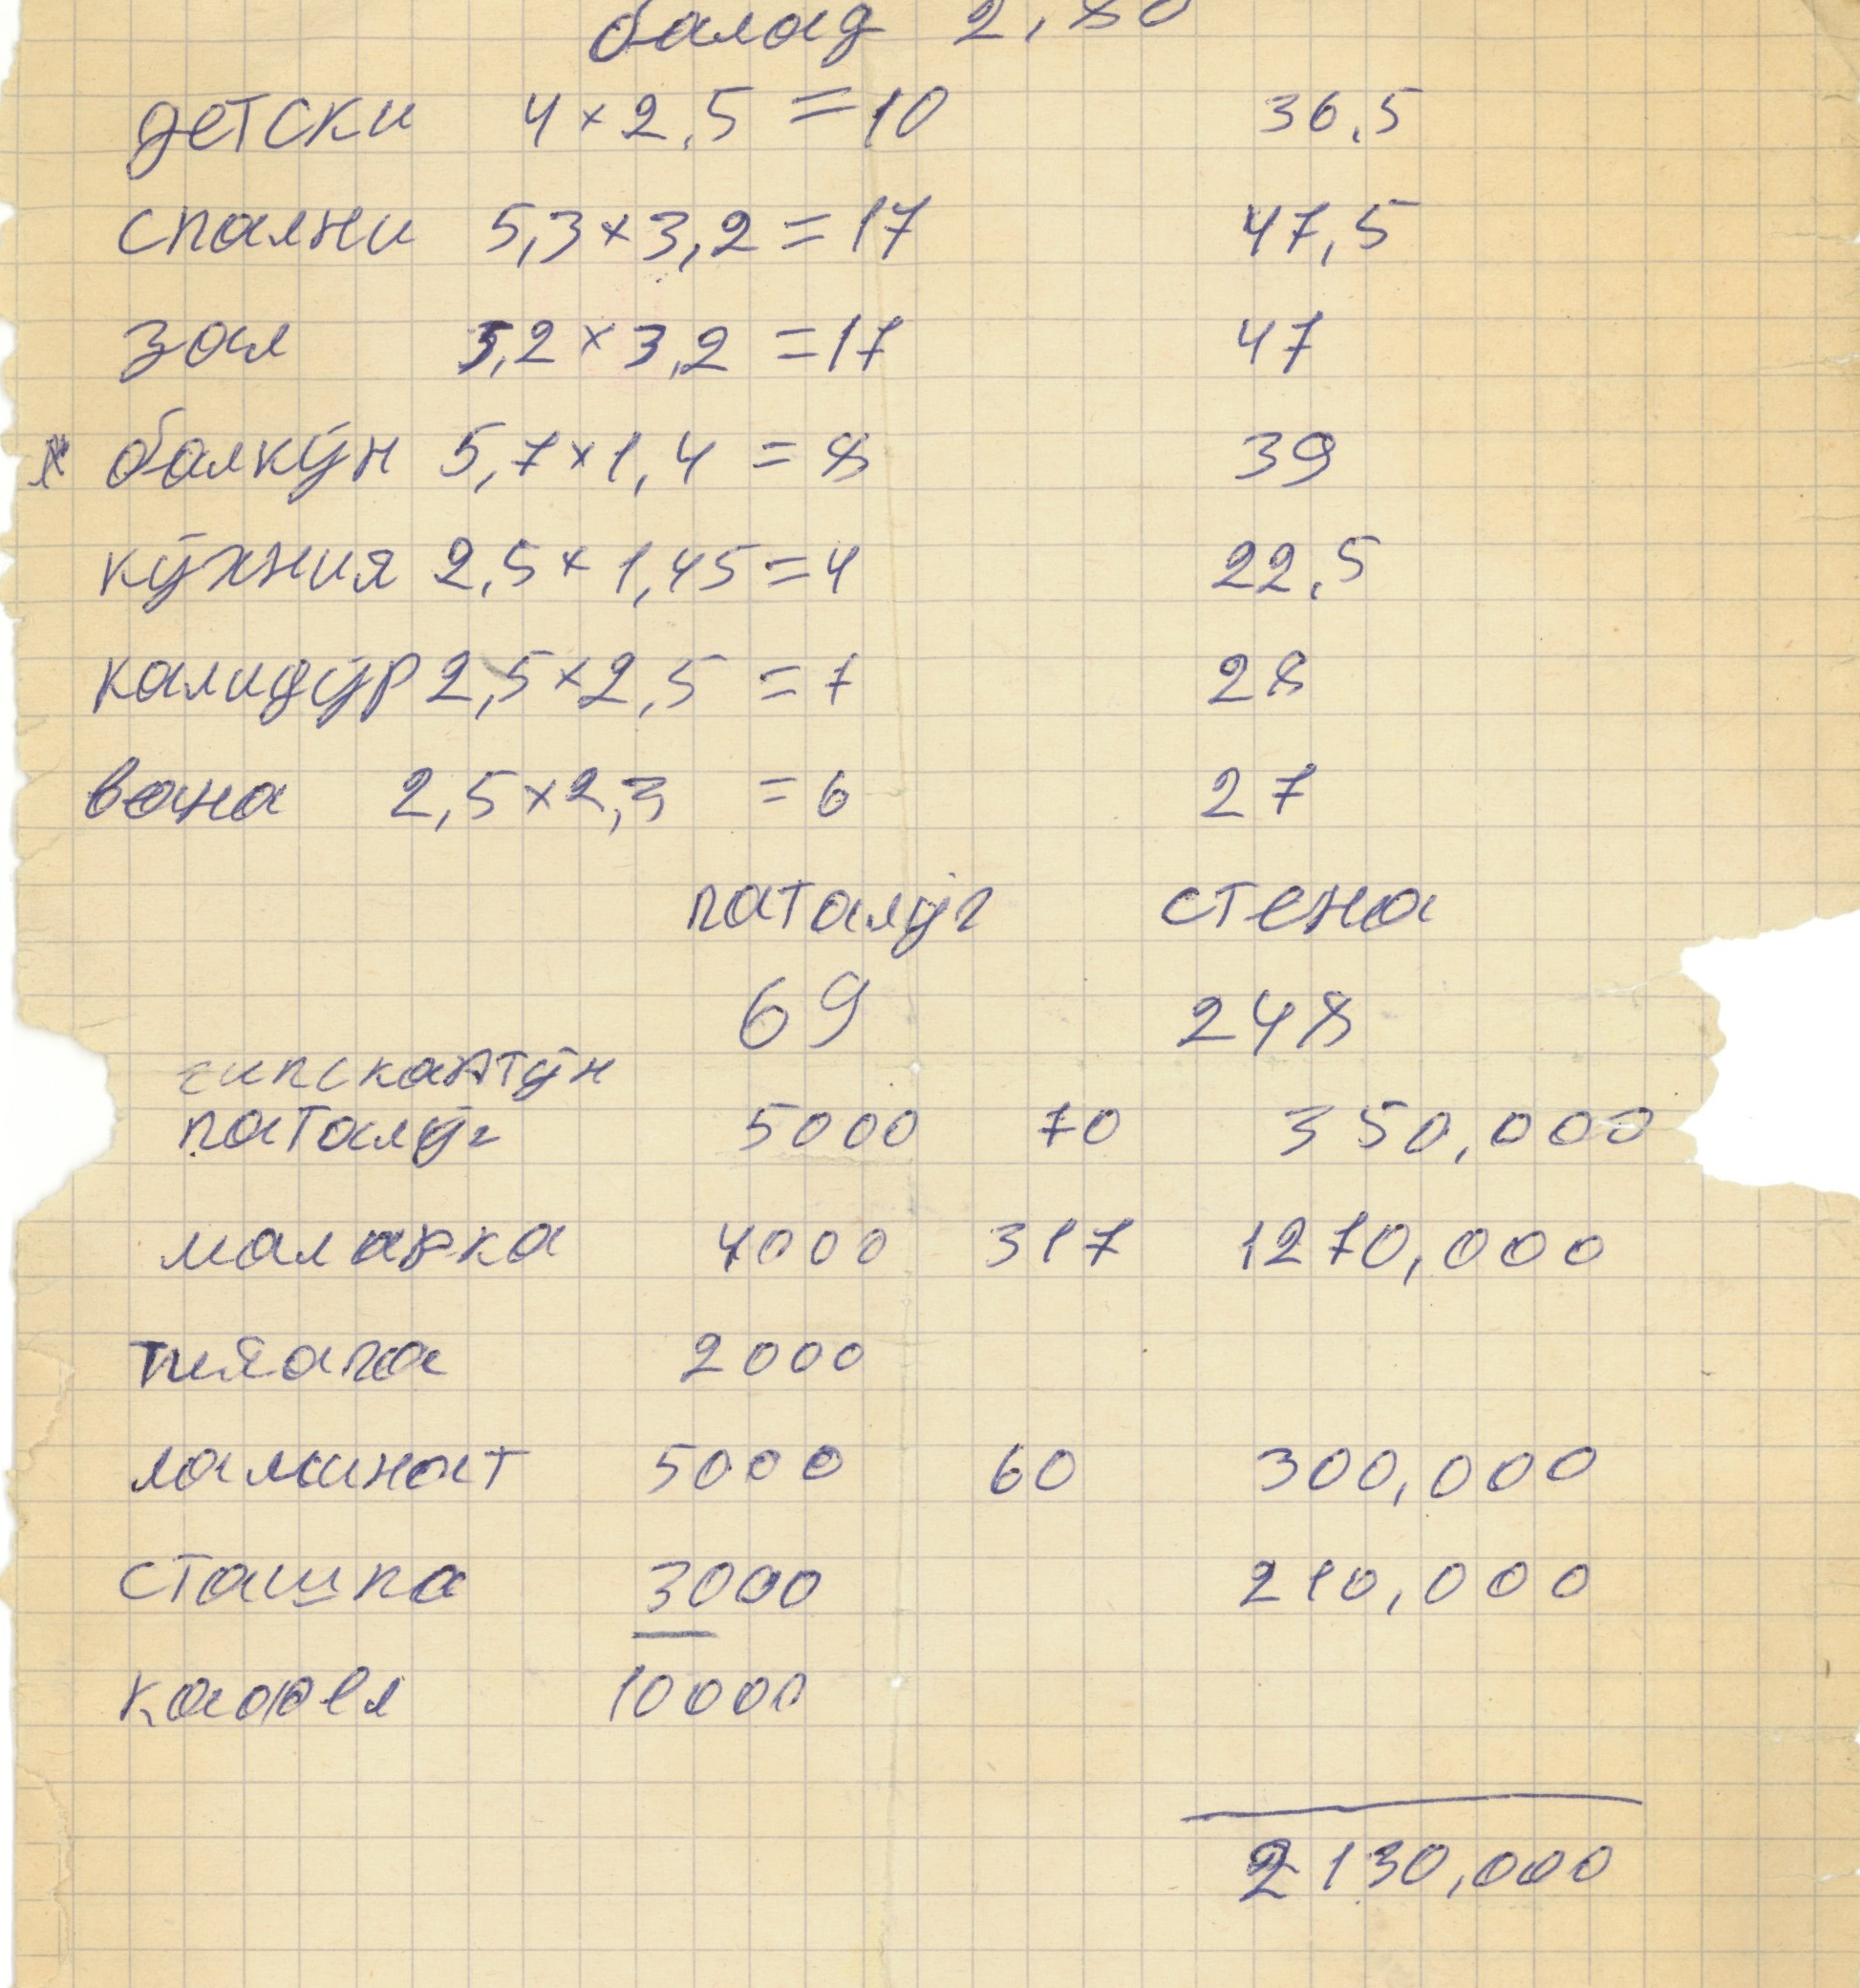 балад 2,80
детски 4×2,5 = 10 36,5
спални 5,3×3,2 = 17 47,5
зал 5,2×3,2 = 17 47
балкўн 5,7×1,4 = 8 39
кўхния 2,5×1,45 = 4 22,5
калидўр 2,5×2,5 = 7 28
вана 2,5×2,3 = 6 27
паталўг стена
69 248
гипскартўн
паталўг 5000 70 350,000
малярка 4000 317 1270,000
2000
ламинат 5000 60 300,000
сташка 3000 210,000
кафел 10000
2130,000